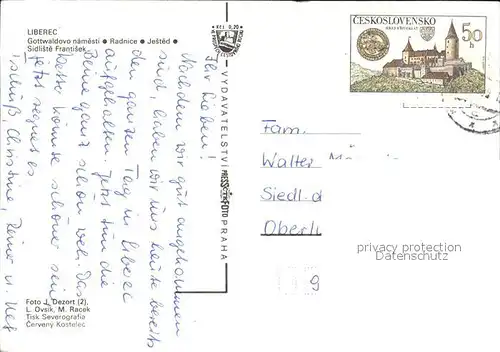 LIBEREC
Gottwaldovo náměstí • Radnice • Ještěd •
Sídliště František
Kčs 0,20
VYDAVATELSTVÍ PRESSFOTO PRAHA
Ihr Lieben!
Nachdem wir gut angekommen
sind, haben wir uns heute bereits
den ganzen Tag in Liberec
aufgehalten. Jetzt tun die
Beine ganz schön weh. Das
Wetter könnte schöner sein
jetzt regnet es.
Tschüß, Christine, Reiner u.
Foto J. Dezort (2),
L. Ovsík, M. Racek
Tisk Severografia
Červený Kostelec
ČESKOSLOVENSKO
50 h
Fam.
Walter
Siedl
Oberl
9
privacy protection
Datenschutz